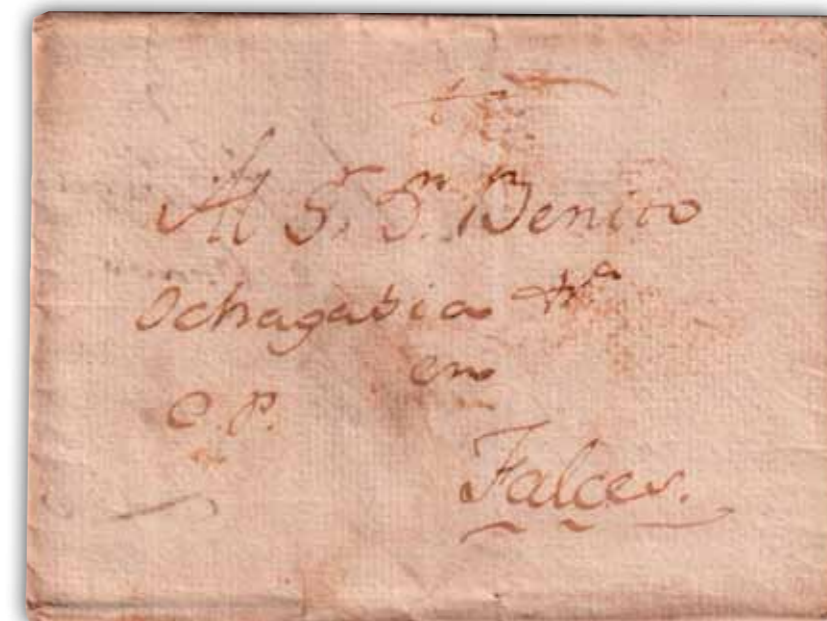 Al S.r D.n Benito
Ochagabia
en
C. P.
Falces.